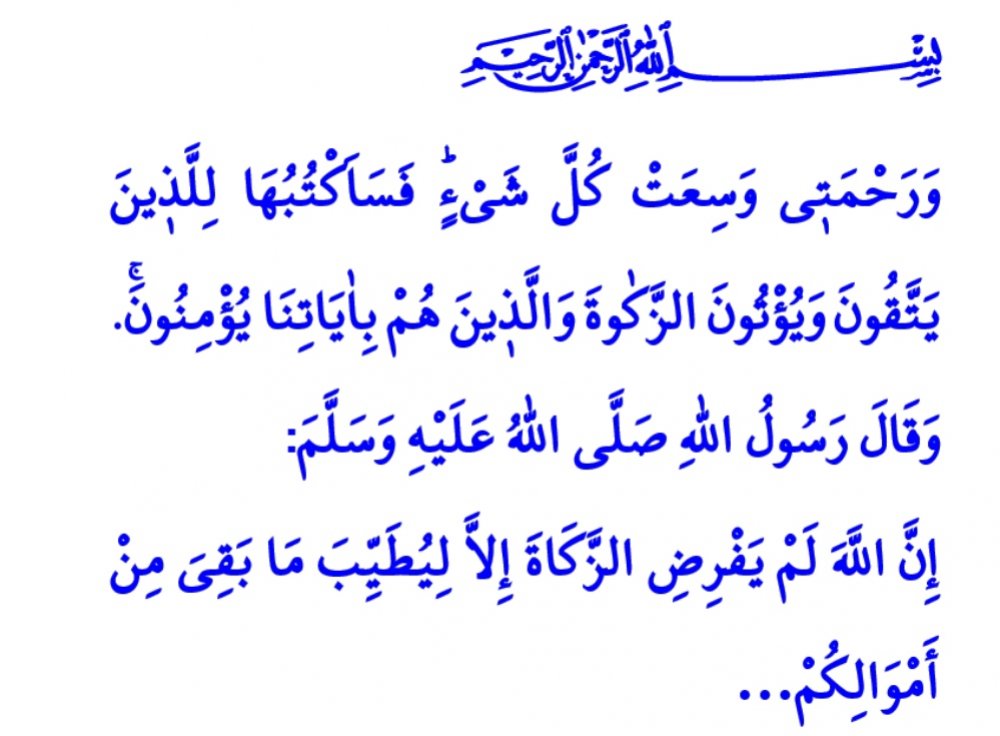 بِسْمِ اللهِ الرَّحْمٰنِ الرَّحِيمِ
وَرَحْمَتٖى وَسِعَتْ كُلَّ شَىْءٍؕ فَسَاَكْتُبُهَا لِلَّذٖينَ
يَتَّقُونَ وَيُؤْتُونَ الزَّكٰوةَ وَالَّذٖينَ هُمْ بِاٰيَاتِنَا يُؤْمِنُونَۚ.
وَقَالَ رَسُولُ اللهِ صَلَّى اللهُ عَلَيْهِ وَسَلَّمَ:
إِنَّ اللَّهَ لَمْ يَفْرِضِ الزَّكَاةَ إِلاَّ لِيُطَيِّبَ مَا بَقِىَ مِنْ
أَمْوَالِكُمْ...